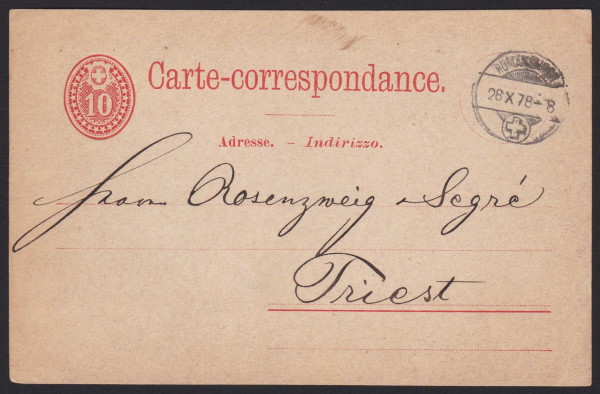 10
Carte-correspondance.
28 X 78-8
Adresse. – Indirizzo.
Rosenzweig & Segré
Triest